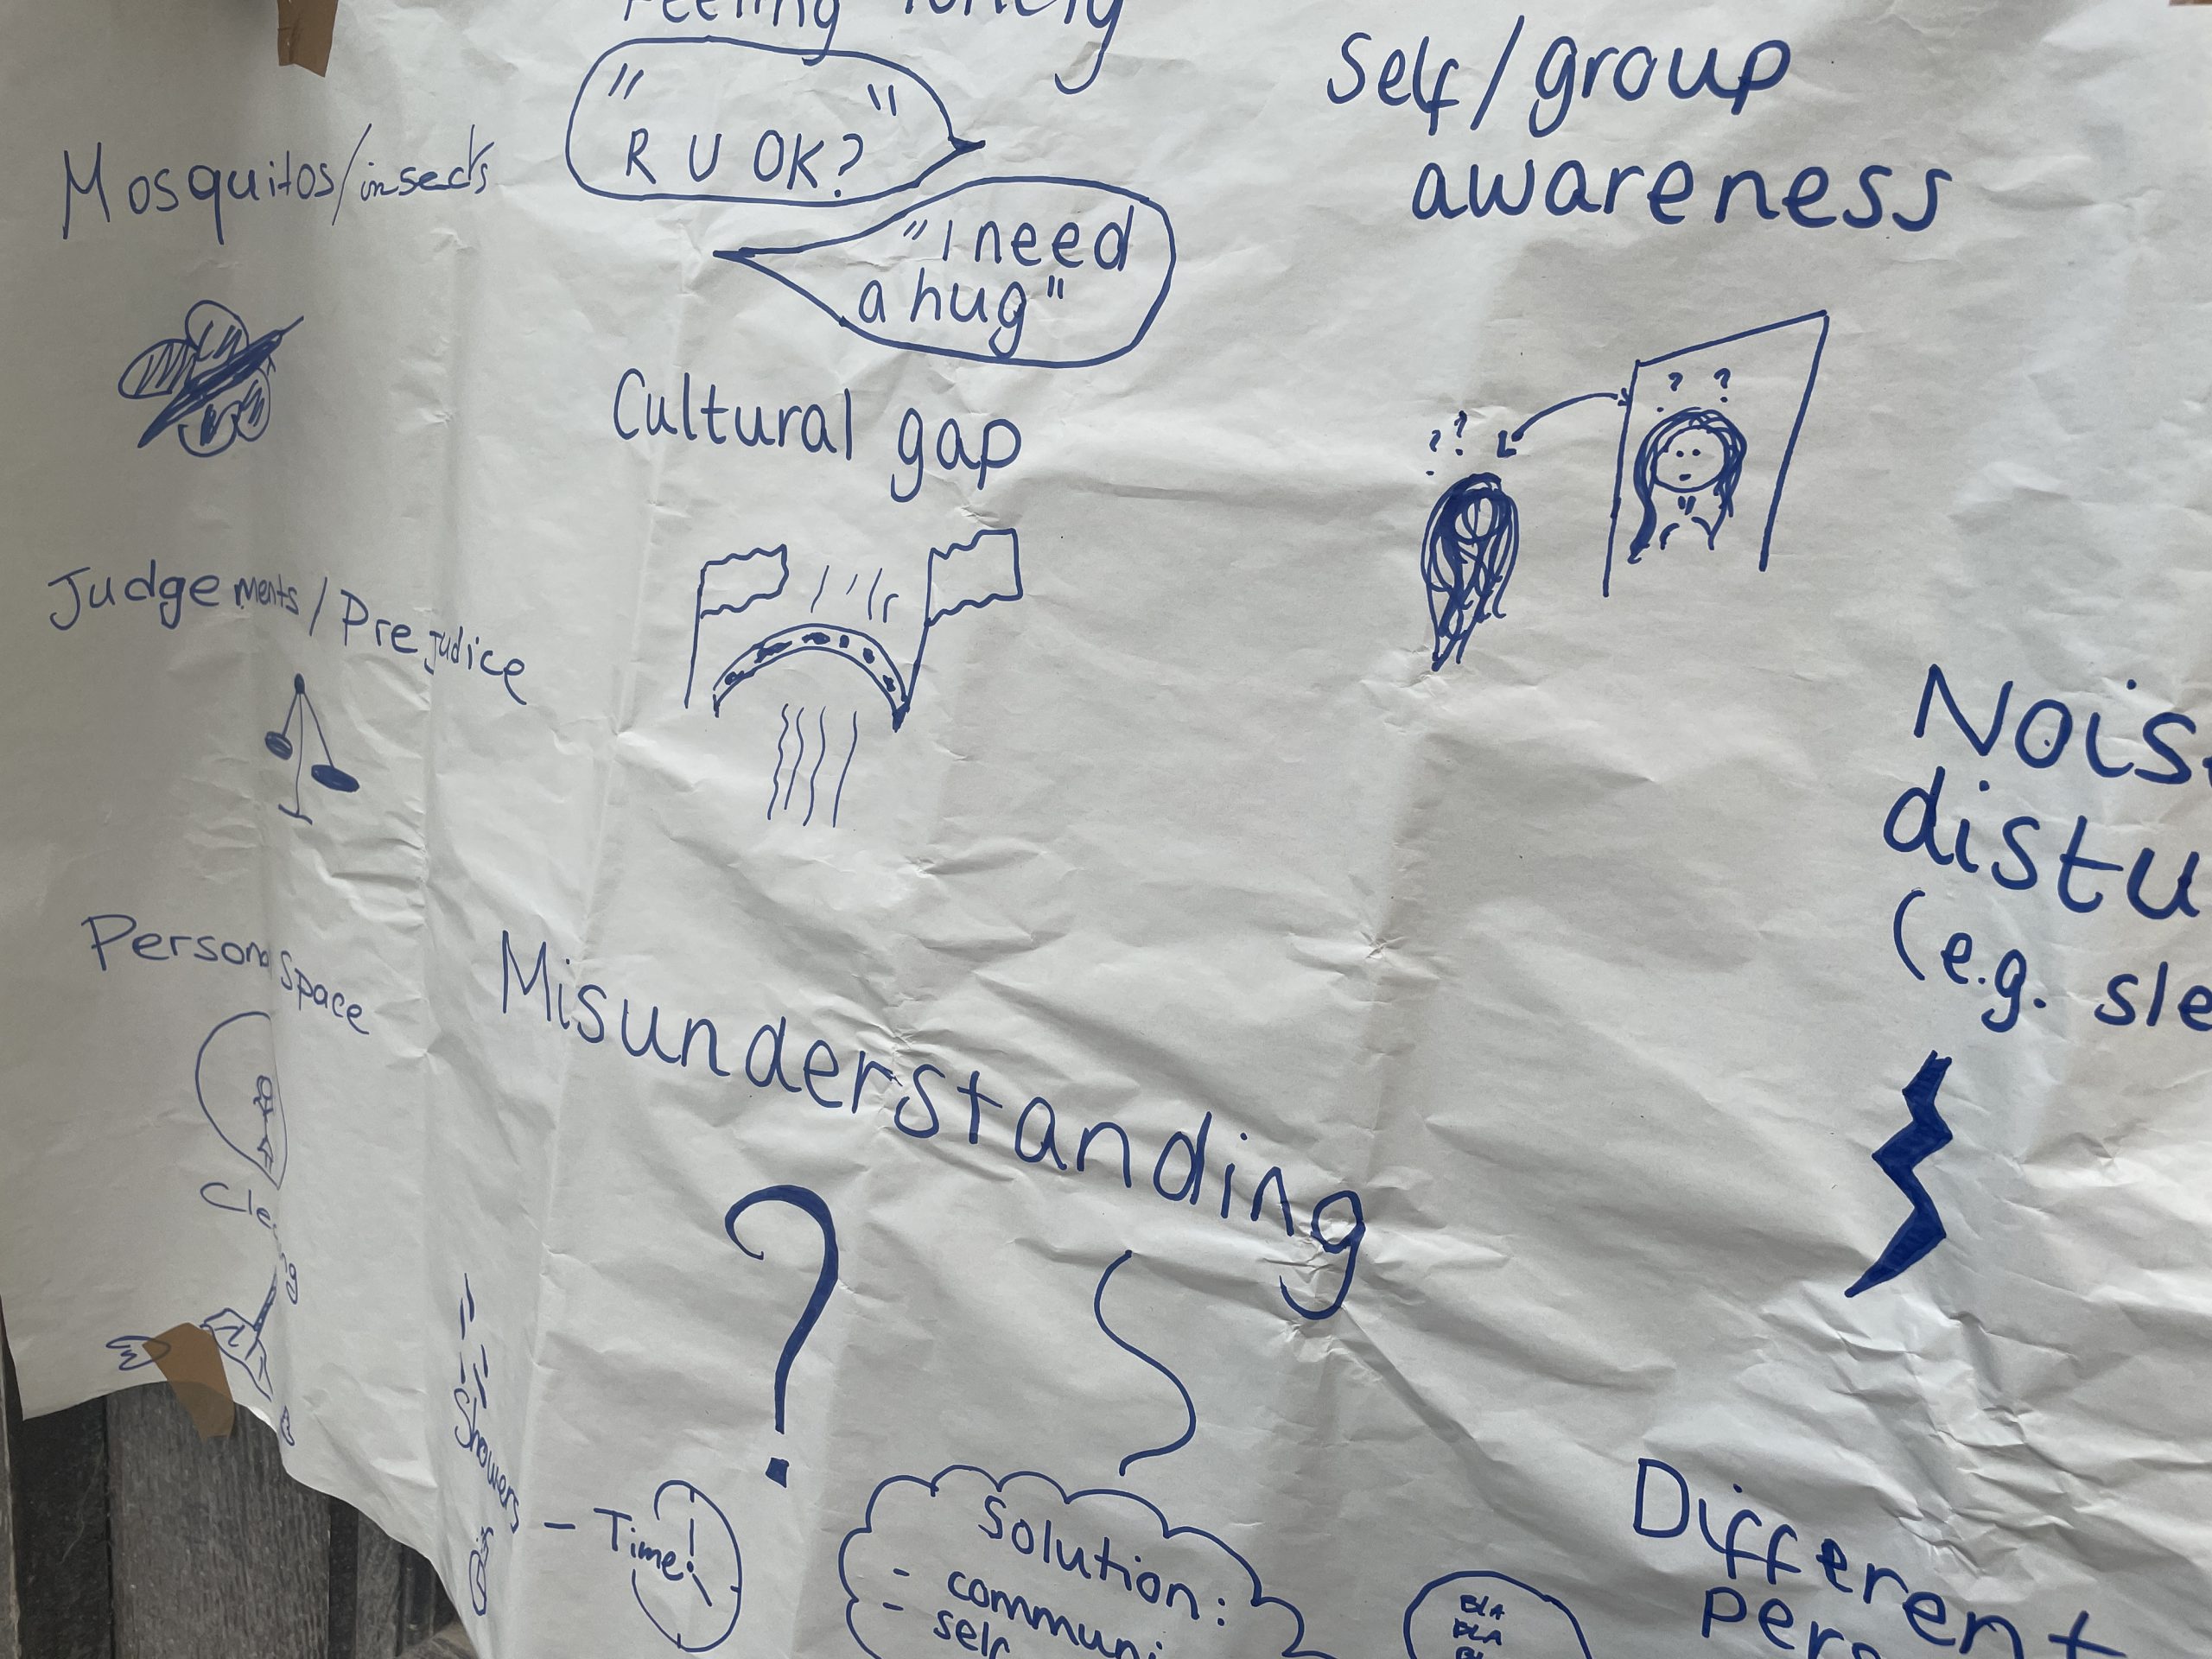 Feeling lonely
"R U OK?"
"I need
a hug"
Self/group
awareness
Mosquitos/insects
Cultural gap
Judgements/Prejudice
Personal space
Nois
distu
(e.g. sle
Misunderstanding
?
Showers - Time!
Solution:
- communi
- self
BLA
BLA
Different
pers